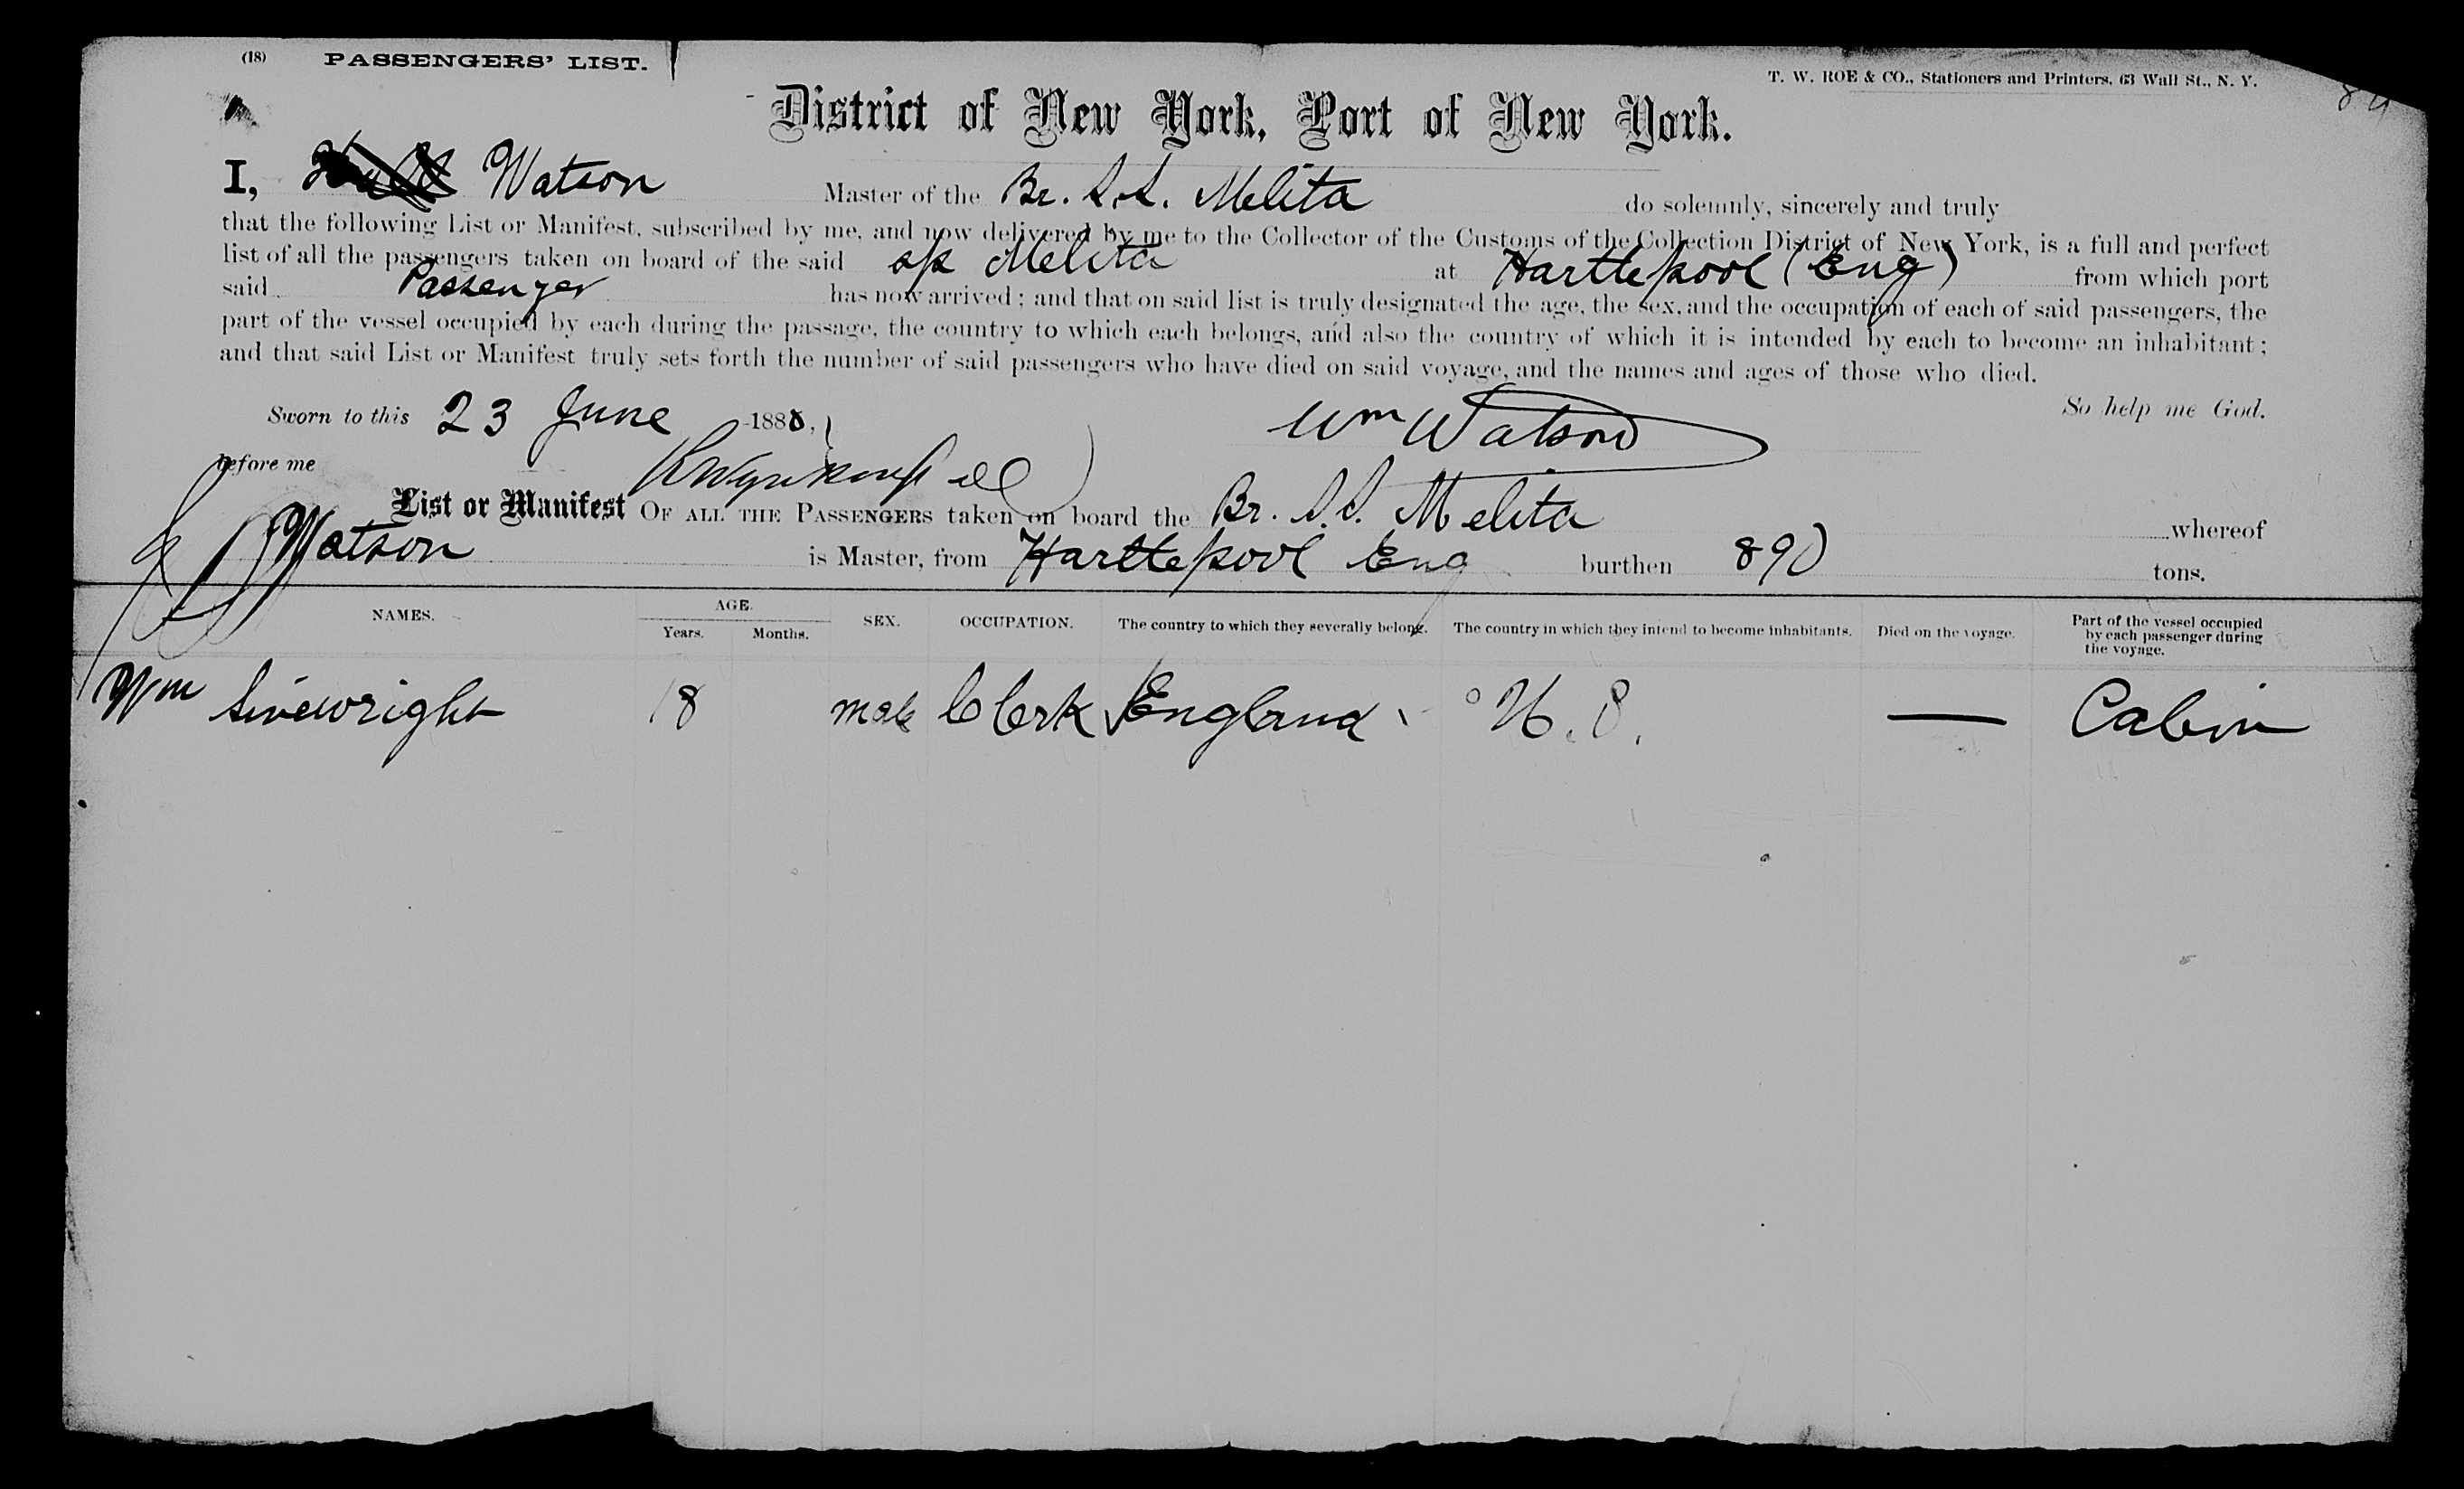 (18) PASSENGERS' LIST.
T. W. ROE & CO., Stationers and Printers, 63 Wall St., N. Y.
District of New York, Port of New York.
I, Watson Master of the Br. S.S. Melita do solemnly, sincerely and truly
that the following List or Manifest, subscribed by me, and now delivered by me to the Collector of the Customs of the Collection District of New York, is a full and perfect
list of all the passengers taken on board of the said Melita at Hartlepool (Eng) from which port
said Passenger has now arrived; and that on said list is truly designated the age, the sex, and the occupation of each of said passengers, the
part of the vessel occupied by each during the passage, the country to which each belongs, and also the country of which it is intended by each to become an inhabitant;
and that said List or Manifest truly sets forth the number of said passengers who have died on said voyage, and the names and ages of those who died.
So help me God.
Sworn to this 23 June 1888,
Wm Watson
before me
List or Manifest OF ALL THE PASSENGERS taken on board the Br. S.S. Melita whereof
Watson is Master, from Hartlepool Eng burthen 890 tons.
NAMES. AGE. Years. Months. SEX. OCCUPATION. The country to which they severally belong. The country in which they intend to become inhabitants. Died on the voyage. Part of the vessel occupied by each passenger during the voyage.
Wm Sivewright 18 male Clerk England U.S. — Cabin